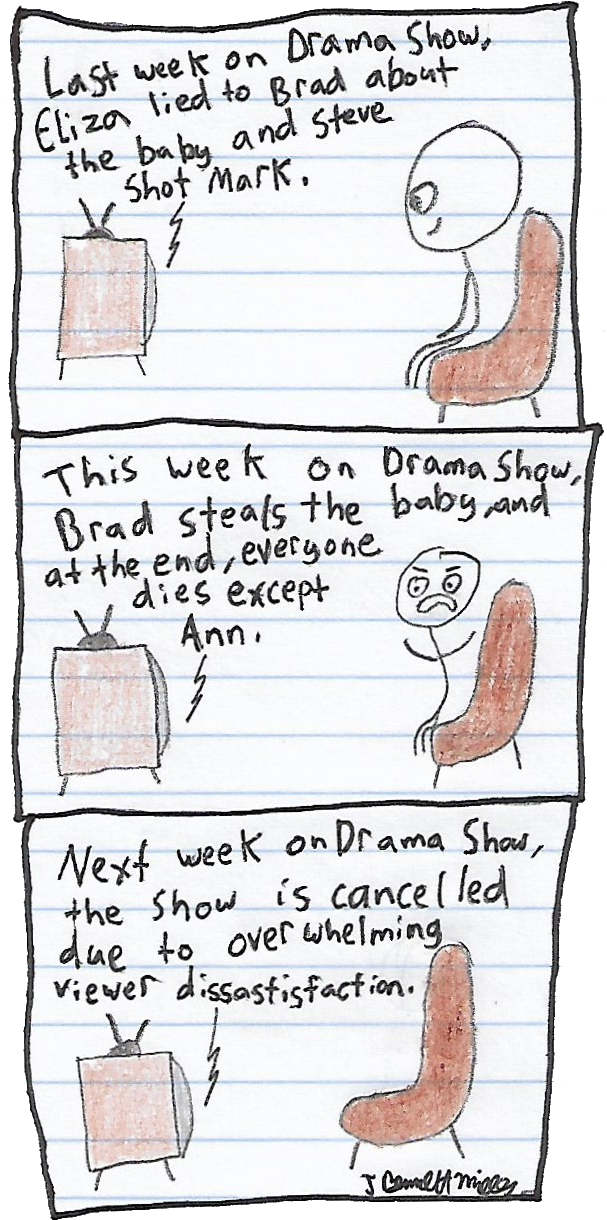 Last week on Drama Show,
Eliza lied to Brad about
the baby and Steve
shot Mark.
This week on Drama Show,
Brad steals the baby, and
at the end, everyone
dies except
Ann.
Next week on Drama Show,
the show is cancelled
due to overwhelming
viewer dissastisfaction.
J